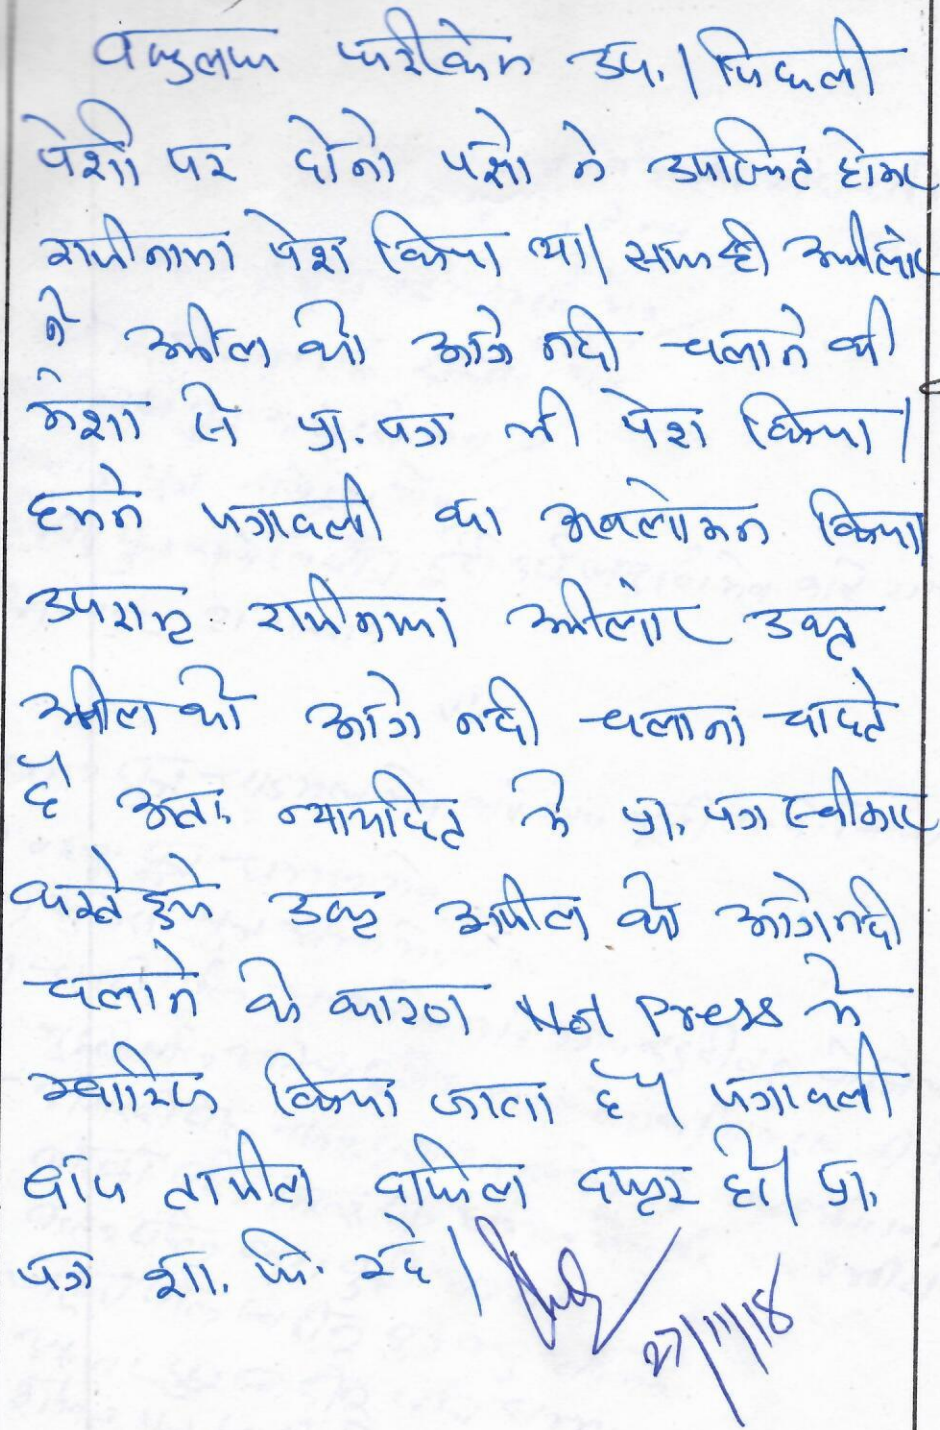 वकुलाय फरीकेन उप.। पिछली
पेशी पर दोनो पक्षो ने उपस्थित होकर
राजीनामा पेश किया था। साथ ही अपीलांट
ने अपील को आगे नही चलाने की
मंशा से प्रा. पत्र भी पेश किया।
हमने पत्रावली का अवलोकन किया
उपरान्त राजीनामा अपीलांट उक्त
अपील को आगे नही चलाना चाहते
है अतः न्यायहित मे प्रा. पत्र स्वीकार
करते हुये उक्त अपील को आगे नही
चलाने के कारण Not Press मे
खारिज किया जाता है। पत्रावली
बाद तामील दाखिल दफ्तर हो। प्रा.
पत्र शा. मि. रहे।
27/11/18